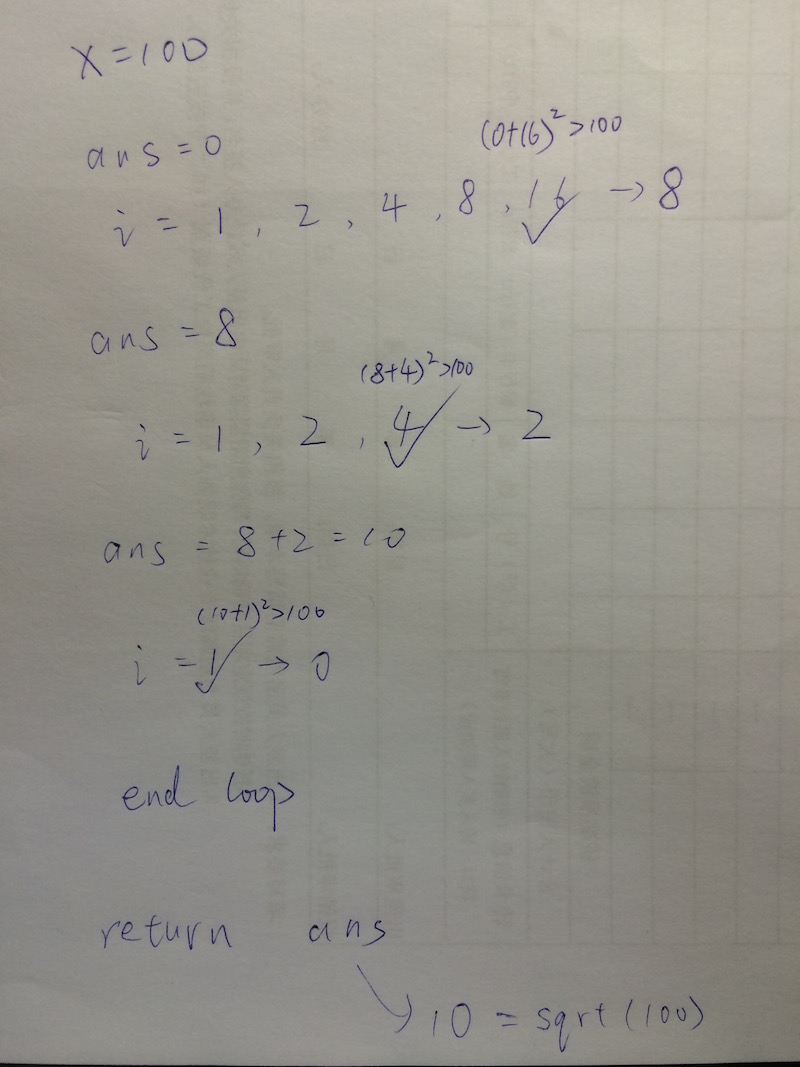 x = 100
ans = 0
(0+16)² > 100
i = 1 , 2 , 4 , 8 , 16 → 8
ans = 8
(8+4)² > 100
i = 1 , 2 , 4 → 2
ans = 8 + 2 = 10
(10+1)² > 100
i = 1 → 0
end loop
return ans
10 = sqrt (100)